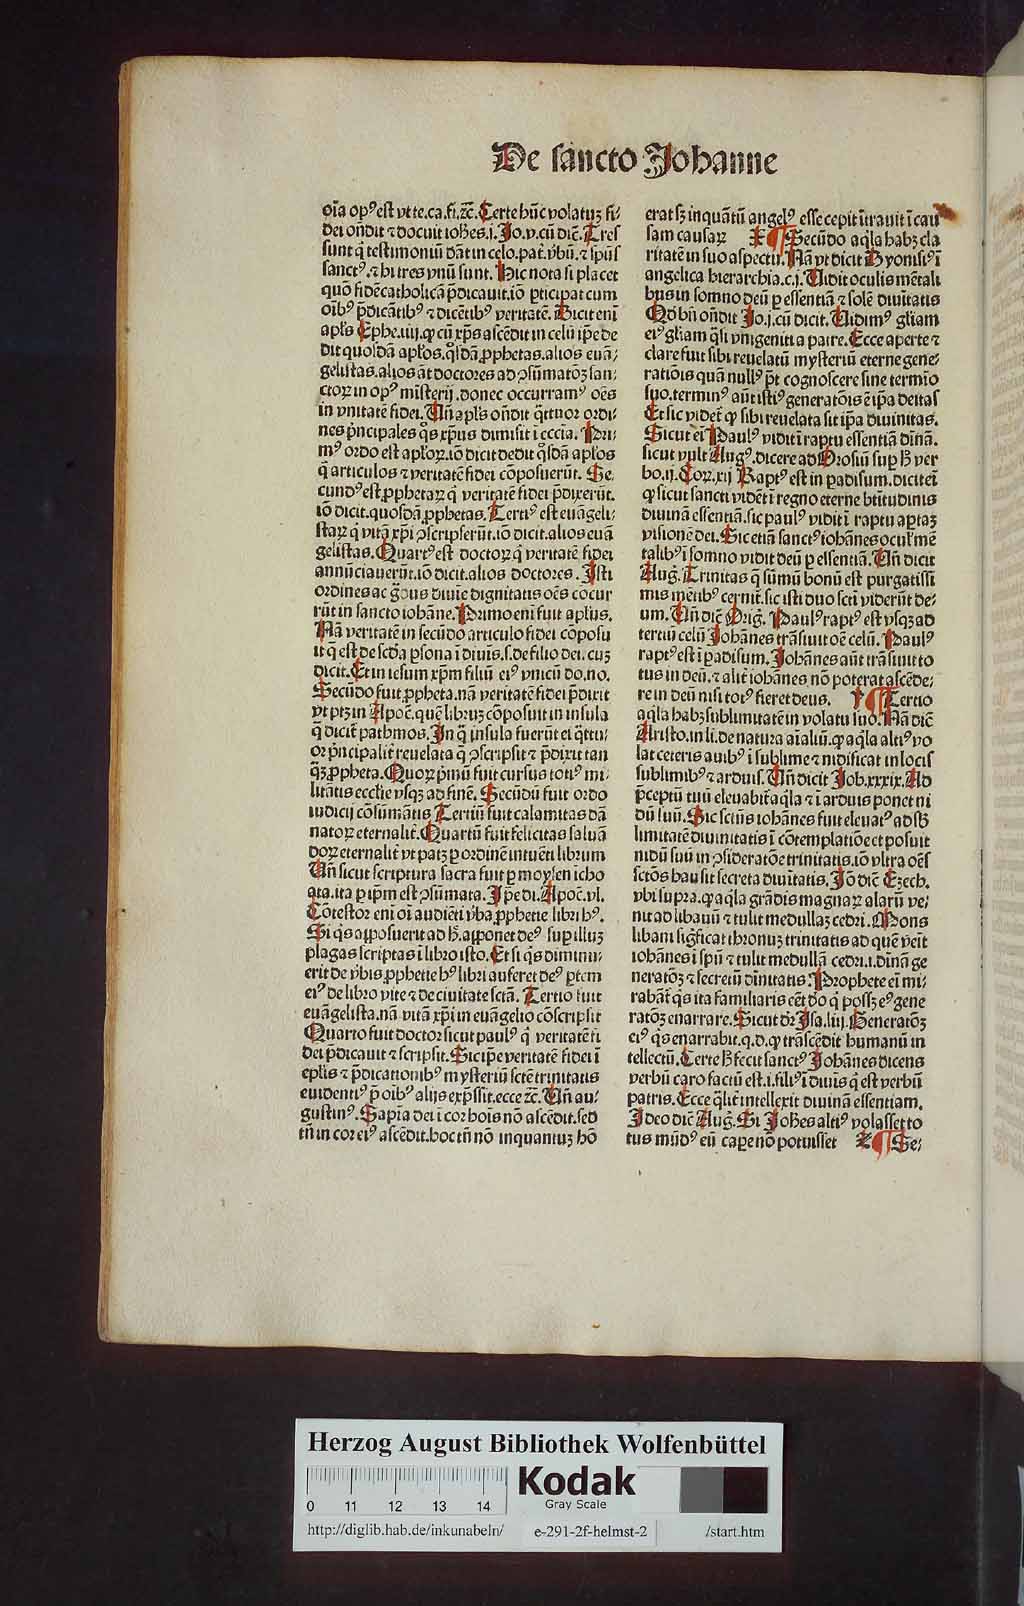 De sancto Johanne
oīa opꝰ est vt te.ca.fi.ꝛc̄. Certe hūc volatuꝫ fi-
dei on̄dit ⁊ docuit ioh̄es.i. Jo.v.cū dic̄. Tres
sunt q̄ testimoniū dāt in celo.pat̄.v̄bū.⁊ sp̄us
sanctꝰ.⁊ hi tres vnū sunt. Hic nota si placet
quō fidē catholicā p̄dicauit.iō ꝑticipat cum
oībꝰ p̄dicātibꝰ ⁊ dicētibꝰ veritatē. Dicit enī
apl̄s Ephe.iiij.ꝙ cū xp̄s ascēdit in celū ip̄e de
dit quosdā apl̄os.q̄sdā ꝓphetas.alios euā-
gelistas.alios āt doctores ad ꝯsūmatōꝫ san-
ctoꝝ in opꝰ misterij.donec occurramꝰ oēs
in vnitatē fidei. Un̄ apl̄s on̄dit q̄ttuor ordi-
nes p̄ncipales q̄s xp̄us dimisit ī ecc̄ia. Pri-
mꝰ ordo est apl̄oꝝ.iō dicit dedit q̄sdā apl̄os
q̄ articulos ⁊ veritatē fidei cōposuerūt. Se-
cundꝰ est ꝓphetaꝝ q̄ veritatē fidei p̄dixerūt.
iō dicit.quosdā ꝓphetas. Tertiꝰ est euāgeli-
staꝝ q̄ vitā xp̄i ꝯscripserūt.iō dicit.alios euā
gelistas. Quartꝰ est doctoꝝ q̄ veritatē fidei
annūciauerūt.iō dicit.alios doctores. Isti
ordines ac ḡdus diuie dignitatis oēs cōcur
rūt in sancto iohāne. Primo enī fuit apl̄us.
Nā veritatē in secūdo articulo fidei cōposu
it q̄ est de scd̄a ꝑsona ī diuis.s.de filio dei.cuꝫ
dicit. Et in iesum xp̄m filiū eiꝰ vnicū do.no.
Secūdo fuit ꝓpheta.nā veritatē fidei p̄dixit
vt ptꝫ in Apoc̄.quē libruꝫ cōposuit in insula
q̄ dicit̄ pathmos. In q̄ insula fuerūt ei q̄ttu-
or p̄ncipalit̄ reuelata q̄ ꝯscripsit ⁊ p̄dixit tan
q̄ꝫ ꝓpheta. Quoꝝ p̄mū fuit cursus totiꝰ mi-
litātis ecclie vsqꝫ ad finē. Secūdū fuit ordo
iudicij cōsūmātis Tertiū fuit calamitas dā
natoꝝ eternalit̄. Quartū fuit felicitas saluā
doꝝ eternalit̄ vt patꝫ ꝑ ordinē intuēti librum
Un̄ sicut scriptura sacra fuit ꝑ moysen icho
ata.ita ꝑ ip̄m est ꝯsūmata. Ip̄e di. Apoc̄.vl.
Cōtestor eni oī audiēti v̄ba ꝓphetie libri hꝰ.
Si q̄s apposuerit ad h̄.apponet deꝰ suꝑ illuꝫ
plagas scriptas ī libro isto. Et si q̄s diminu-
erit de v̄bis ꝓphetie hꝰ libri auferet deꝰ ꝑtem
eiꝰ de libro vite ⁊ de ciuitate sctā. Tertio fuit
euāgelista.nā vitā xp̄i in euāgelio cōscripsit
Quarto fuit doctor sicut paulꝰ q̄ veritatē fi
dei p̄dicauit ⁊ scripsit. Sic ip̄e veritatē fidei ī
ep̄lis ⁊ p̄dicationibꝰ mysteriū sctē trinitatis
euidentiꝰ p̄ oībꝰ alijs exp̄ssit.ecce ꝛc̄. Un̄ au-
gustinꝰ. Sap̄ia dei ī cor hois nō ascēdit.sed
tn̄ in cor eiꝰ ascēdit.hoc tn̄ nō inquantuꝫ hō
erat sꝫ inquātū angelꝰ esse cepit ītrauit ī cau
sam causaꝝ ¶ Secūdo aq̄la habꝫ cla
ritatē in suo aspectu. Nā vt dicit Dyonisiꝰ ī
angelica hierarchia.c.j. Uidit oculis mētali
bus in somno deū ꝑ essentiā ⁊ solē diuītatis
Qd̄ bn̄ on̄dit Jo.j.cū dicit. Uidimꝰ gl̄iam
eiꝰ gl̄iam q̄si vnigeniti a patre. Ecce aperte ⁊
clare fuit sibi reuelatū mysteriū eterne gene-
ratiōis quā nullꝰ p̄t cognoscere sine termīo
suo.terminꝰ aūt istiꝰ generatōis ē ip̄a deitas
Et sic videt̄ ꝙ sibi reuelata sit ip̄a diuinitas.
Sicut eī Paulꝰ vidit ī raptu essentiā diīnā.
sicut vult Augꝰ.dicere ad Orosiū suꝑ h̄ ver
bo.ij. Coꝝ.xij Raptꝰ est in ꝑadisum.dicit eī
ꝙ sicut sancti vidēt ī regno eterne btitudinis
diuinā essentiā.sic paulꝰ vidit ī raptu aptaꝫ
visionē dei. Sic etiā sanctꝰ iohānes ocul̄ mē
talibꝰ ī somno vidit deū ꝑ essentiā. Un̄ dicit
Auḡ. Trinitas q̄ sūmū bonū est purgatissi
mis mētibꝰ cernit̄.sic isti duo scti viderūt de-
um. Un̄ dic̄ Oriḡ. Paulꝰ raptꝰ est vsqꝫ ad
tertiū celū Johānes trāsiuit oē celū. Paulꝰ
raptꝰ est ī ꝑadisum. Johānes aūt trāsiuit to
tus in deū.⁊ alit̄ iohānes nō poterat ascēde-
re in deū nisi totꝰ fieret deus. ¶ Tertio
aq̄la habꝫ sublimitatē in volatu suo. Nā dic̄
Aristo.in li.de natura aīaliū.ꝙ aq̄la altiꝰ vo
lat ceteris auibꝰ ī sublime ⁊ nidificat in locis
sublimibꝰ ⁊ arduis. Un̄ dicit Job.xxxix. Ad
p̄ceptū tuū eleuabit̄ aq̄la ⁊ ī arduis ponet ni
dū suū. Sic sctūs iohānes fuit eleuatꝰ ad sb̄
limitatē diuinitatis ī cōtemplatiōe et posuit
nidū suū in ꝯsideratōe trinitatis.iō vltra oēs
sctōs hausit secreta diuītatis. Iō dic̄ Ezech.
vbi supra.ꝙ aq̄la grādis magnaꝝ alarū ve-
nit ad libanū ⁊ tulit medullaꝫ cedri. Mons
libani siḡficat thronuꝫ trinitatis ad quē veīt
iohānes ī spū ⁊ tulit medullā cedri.i.diīnā ge
neratōꝫ ⁊ secretū diīnitatis. Prophete eī mi-
rabāt̄ q̄s ita familiaris eēt do q̄ possꝫ eꝰ gene
ratōꝫ enarrare. Sicut dr̄ Isa.liij. Generatōꝫ
eiꝰ q̄s enarrabit.q.d.ꝙ trāscēdit humanū in
tellectū. Certe h̄ fecit sanctꝰ Johānes dicens
verbū caro factū est.i.filiꝰ ī diuīs q̄ est verbū
patris. Ecce q̄lit̄ intellexit diuinā essentiam.
Ideo dic̄ Auḡ. Si Joh̄es altiꝰ volasset to
tus mūdꝰ eū caꝑe nō potuisset ¶ Se-
Herzog August Bibliothek Wolfenbüttel
Kodak
Gray Scale
0 11 12 13 14
http://diglib.hab.de/inkunabeln/ e-291-2f-helmst-2 /start.htm